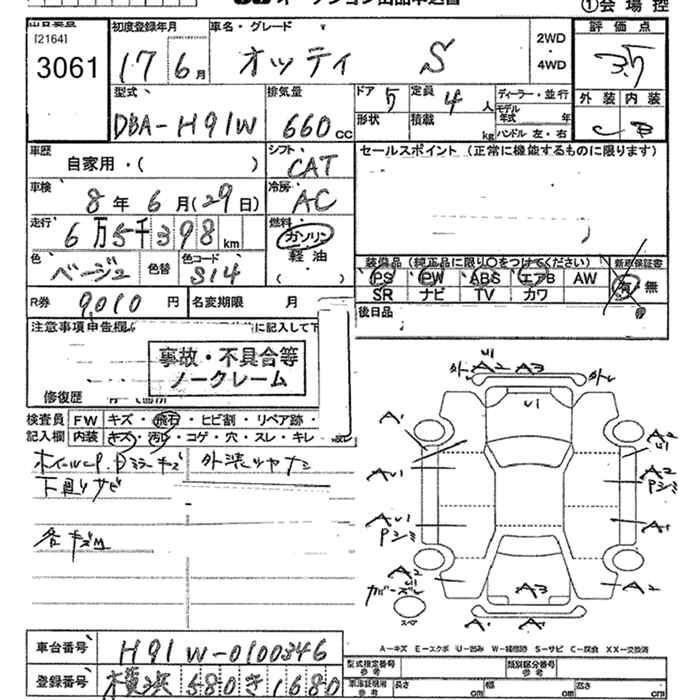 オークション出品申込書
①会場控
[2164]
3061
初度登録年月
17 6月
車名・グレード
オッティ S
2WD
・
4WD
評価点
3.5
外装 内装
C B
型式
DBA-H91W
排気量
660cc
ドア 5
定員 4人
形状
積載 kg
ディーラー・並行
モデル年式 年
ハンドル 左・右
車歴
自家用・( )
シフト
CAT
セールスポイント (正常に機能するものに限ります)
車検
8年 6月(29日)
冷房
AC
走行
6万5千398km
燃料
ガソリン
軽油
( )
色
ベージュ
色替
色コード
S14
装備品(純正品に限り○をつけてください)
PS PW ABS エアB AW
SR ナビ TV カワ
新車保証書
有・無
R券 9,010円
名変期限 月
後日品
注意事項申告欄
に記入して下
事故・不具合等
ノークレーム
修復歴
検査員 FW キズ・飛石・ヒビ割・リペア跡・
記入欄 内装 キズ・汚れ・コゲ・穴・スレ・キレ・
ホイールCP.Dミラーキズ 外装ツヤナシ
下廻りサビ
各キズM
U1
外レ A2 A3 外レ
U1
A1 A2
U1
AU1 A2
Pシミ
AU1 A1
Pシミ
A2
A3 A2
スペア
A1 A1
A-キズ E-エクボ U-凹み W-補修跡 S-サビ C-腐食 XX-交換済
車台番号 H91W-0100346
登録番号 横浜 580 き 1680
型式指定番号
参考
類別区分番号
参考
車庫証明用
参考
長さ cm
幅 cm
高さ cm